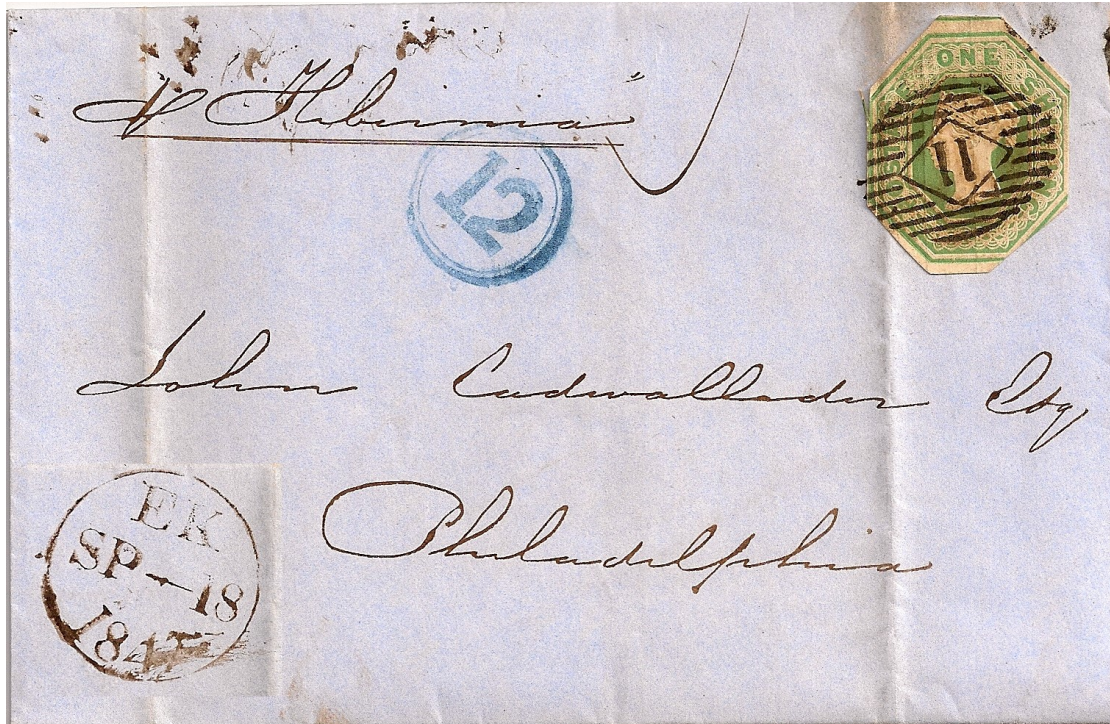 ONE
11
pr Hibernia
12
John Cadwallader Esq
Philadelphia
EK
SP-18
1847